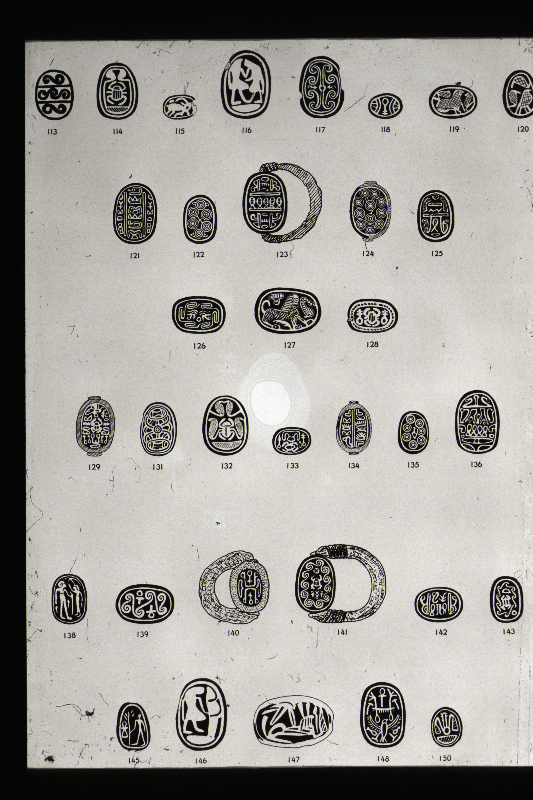 113 114 115 116 117 118 119 120
121 122 123 124 125
126 127 128
129 131 132 133 134 135 136
138 139 140 141 142 143
145 146 147 148 150